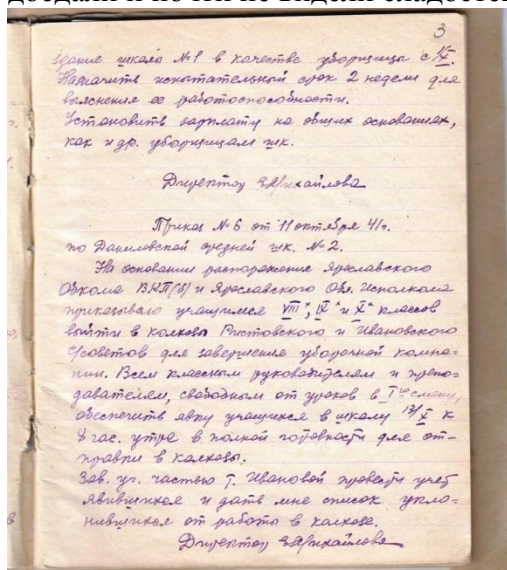 3
здание школы №1 в качестве уборщицы с 1/X.
Назначить испытательный срок 2 недели для
выяснения ее работоспособности.
Установить зарплату на общих основаниях,
как и др. уборщицам шк.
Директор Михайлова
Приказ №6 от 11 октября 41г.
по Даниловской средней шк. №2.
На основании распоряжения Ярославского
Обкома ВКП(б) и Ярославского Обл. Исполкома
приказываю учащимся VIII х, IX х и X х классов
выйти в колхозы Ристовского и Ивановского
с/советов для завершения уборочной компа=
нии. Всем классным руководителям и препо=
давателям, свободным от уроков в I ую смену,
обеспечить явку учащихся в школу 13/X к
8 час. утра в полной готовности для от-
правки в колхозы.
Зав. уч. частью т. Ивановой провести учет
явившихся и дать мне список укло=
нившихся от работы в колхозе.
Директор Михайлова